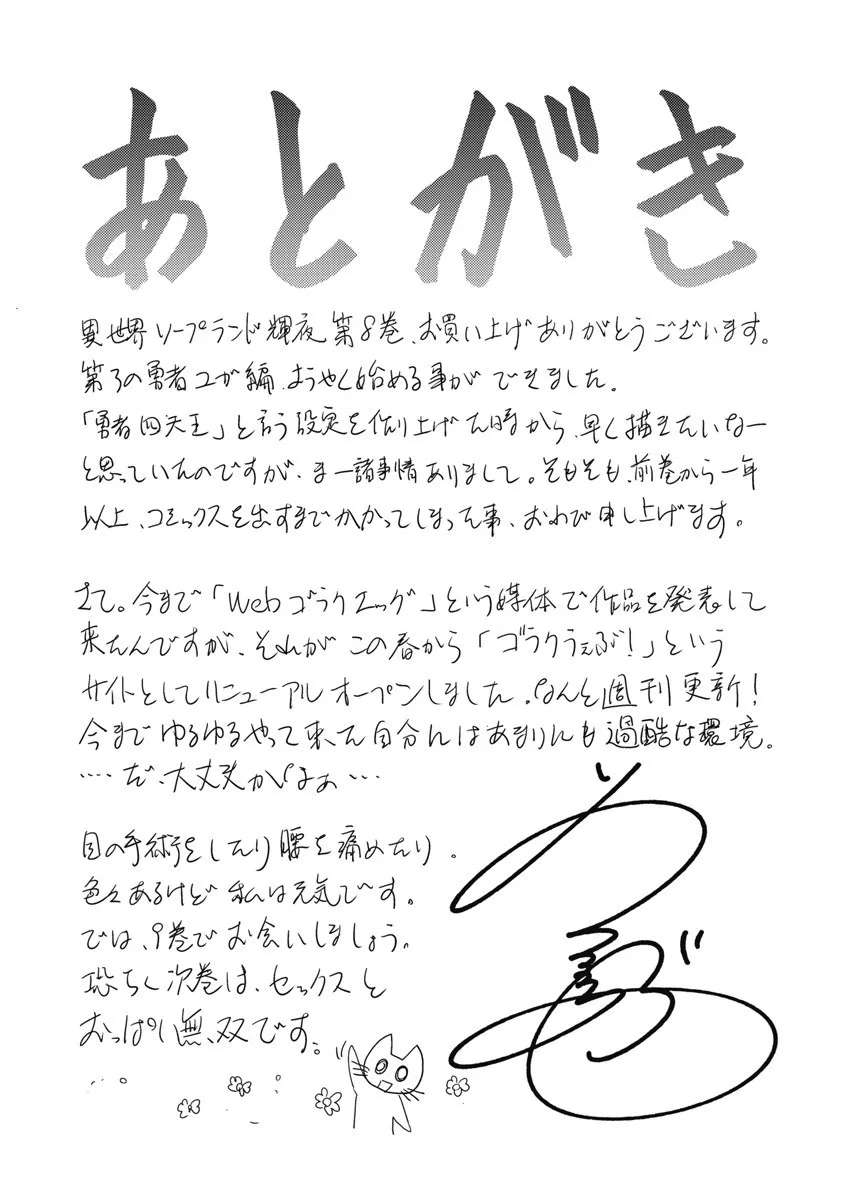 あとがき
異世界ソープランド輝夜第8巻、お買い上げありがとうございます。
第3の勇者ユガ編、ようやく始める事ができました。
「勇者四天王」と言う設定を作り上げた時から、早く描きたいなー
と思っていたのですが、まー諸事情ありまして。そもそも、前巻から一年
以上、コミックスを出すまでかかってしまった事、おわび申し上げます。
さて。今まで「Webゴラクエッグ」という媒体で作品を発表して
来たんですが、それがこの春から「ゴラクうぇぶ!」という
サイトとしてリニューアルオープンしました。なんと週刊更新!
今までゆるゆるやって来た自分にはあまりにも過酷な環境。
‥‥だ、大丈夫かなぁ‥‥
目の手術をしたり腰を痛めたり。
色々あるけど私は元気です。
では、9巻でお会いしましょう。
恐らく次巻は、セックスと
おっぱい無双です。